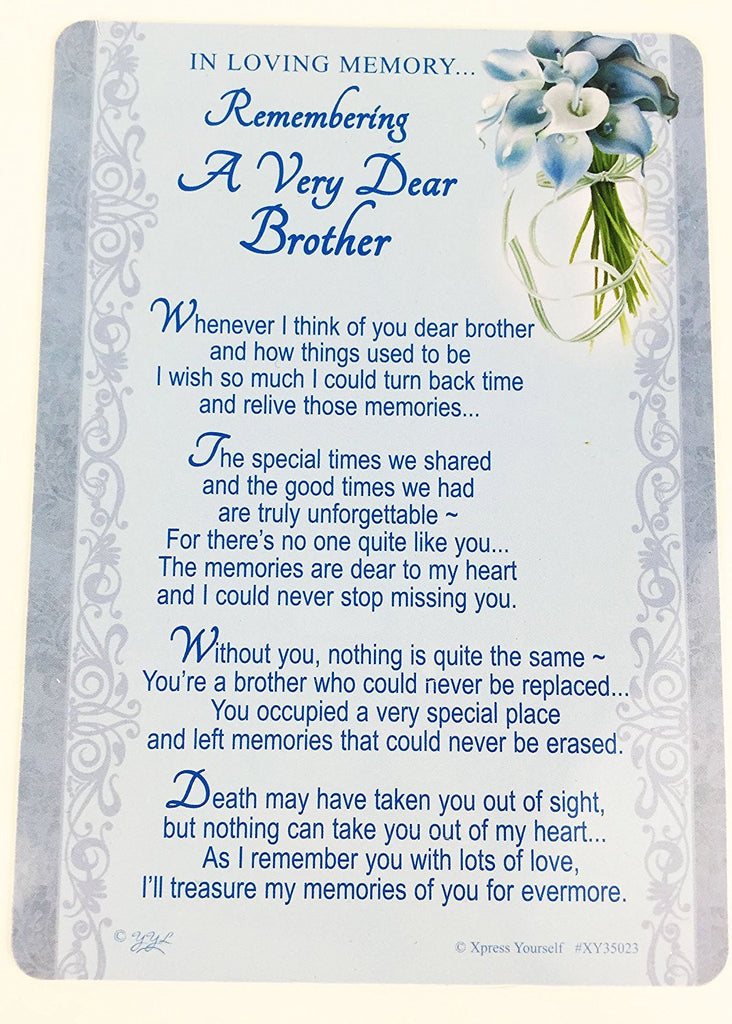 IN LOVING MEMORY...
Remembering
A Very Dear
Brother
Whenever I think of you dear brother
and how things used to be
I wish so much I could turn back time
and relive those memories...
The special times we shared
and the good times we had
are truly unforgettable ~
For there's no one quite like you...
The memories are dear to my heart
and I could never stop missing you.
Without you, nothing is quite the same ~
You're a brother who could never be replaced...
You occupied a very special place
and left memories that could never be erased.
Death may have taken you out of sight,
but nothing can take you out of my heart...
As I remember you with lots of love,
I'll treasure my memories of you for evermore.
© YYL
© Xpress Yourself #XY35023